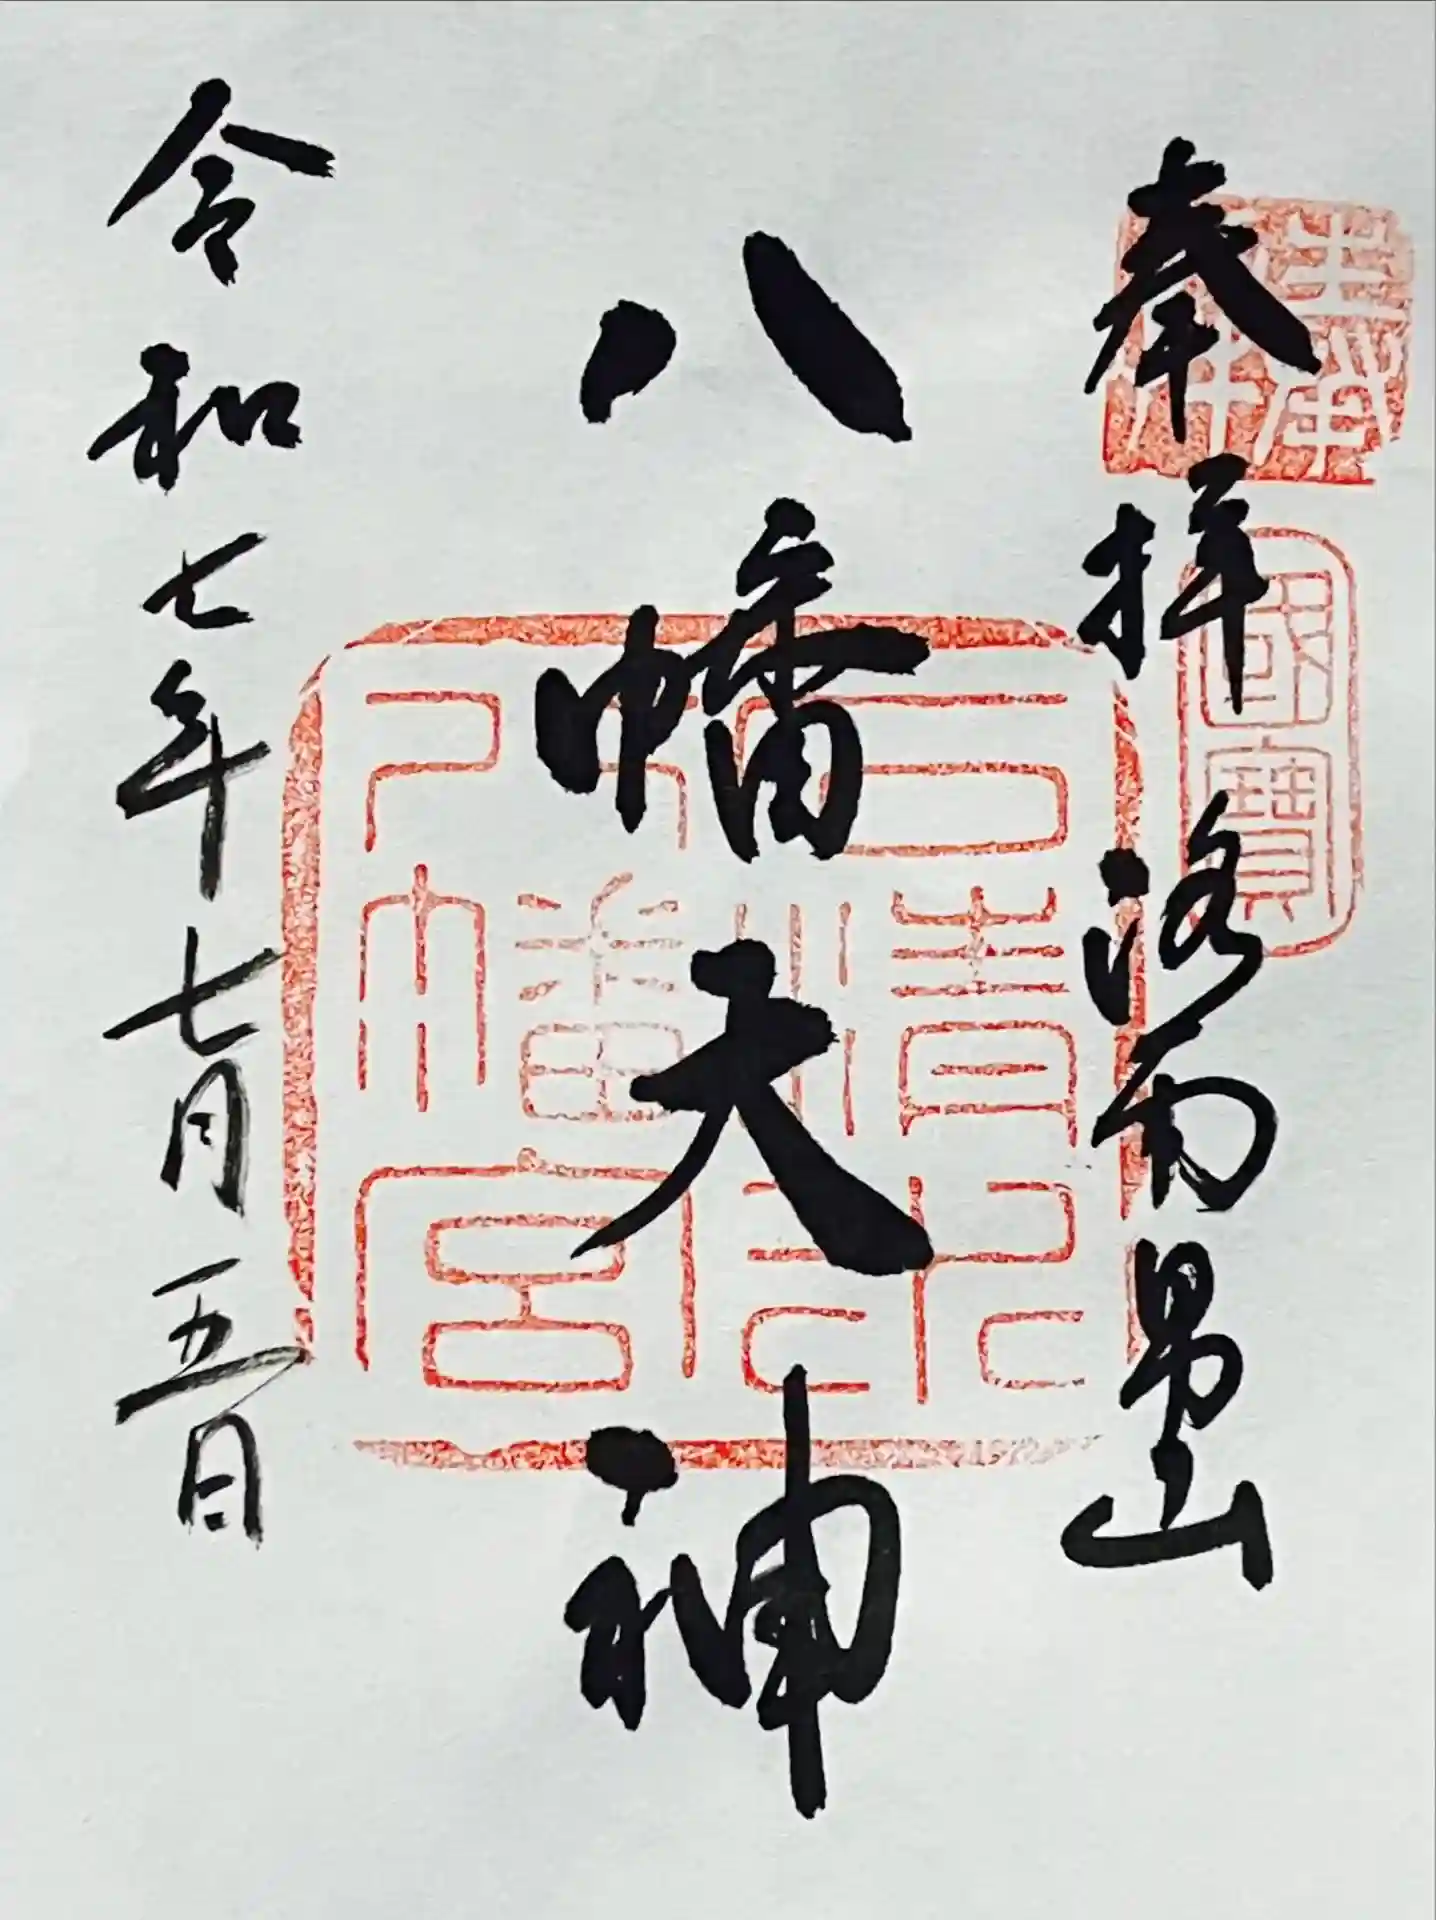 奉拝 洛南男山
國寶
八幡大神
石清水
八幡宮
令和七年七月五日